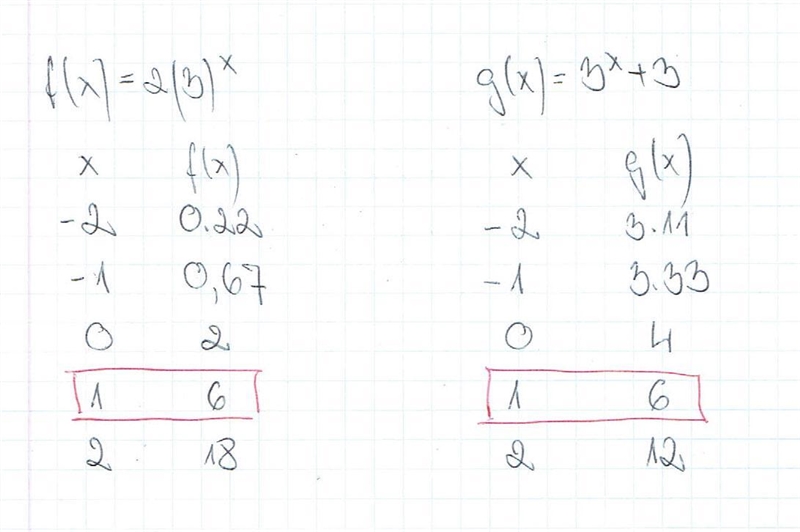 f(x) = 2(3)^x
x f(x)
-2 0.22
-1 0,67
0 2
1 6
2 18
g(x) = 3^x + 3
x g(x)
-2 3.11
-1 3.33
0 4
1 6
2 12